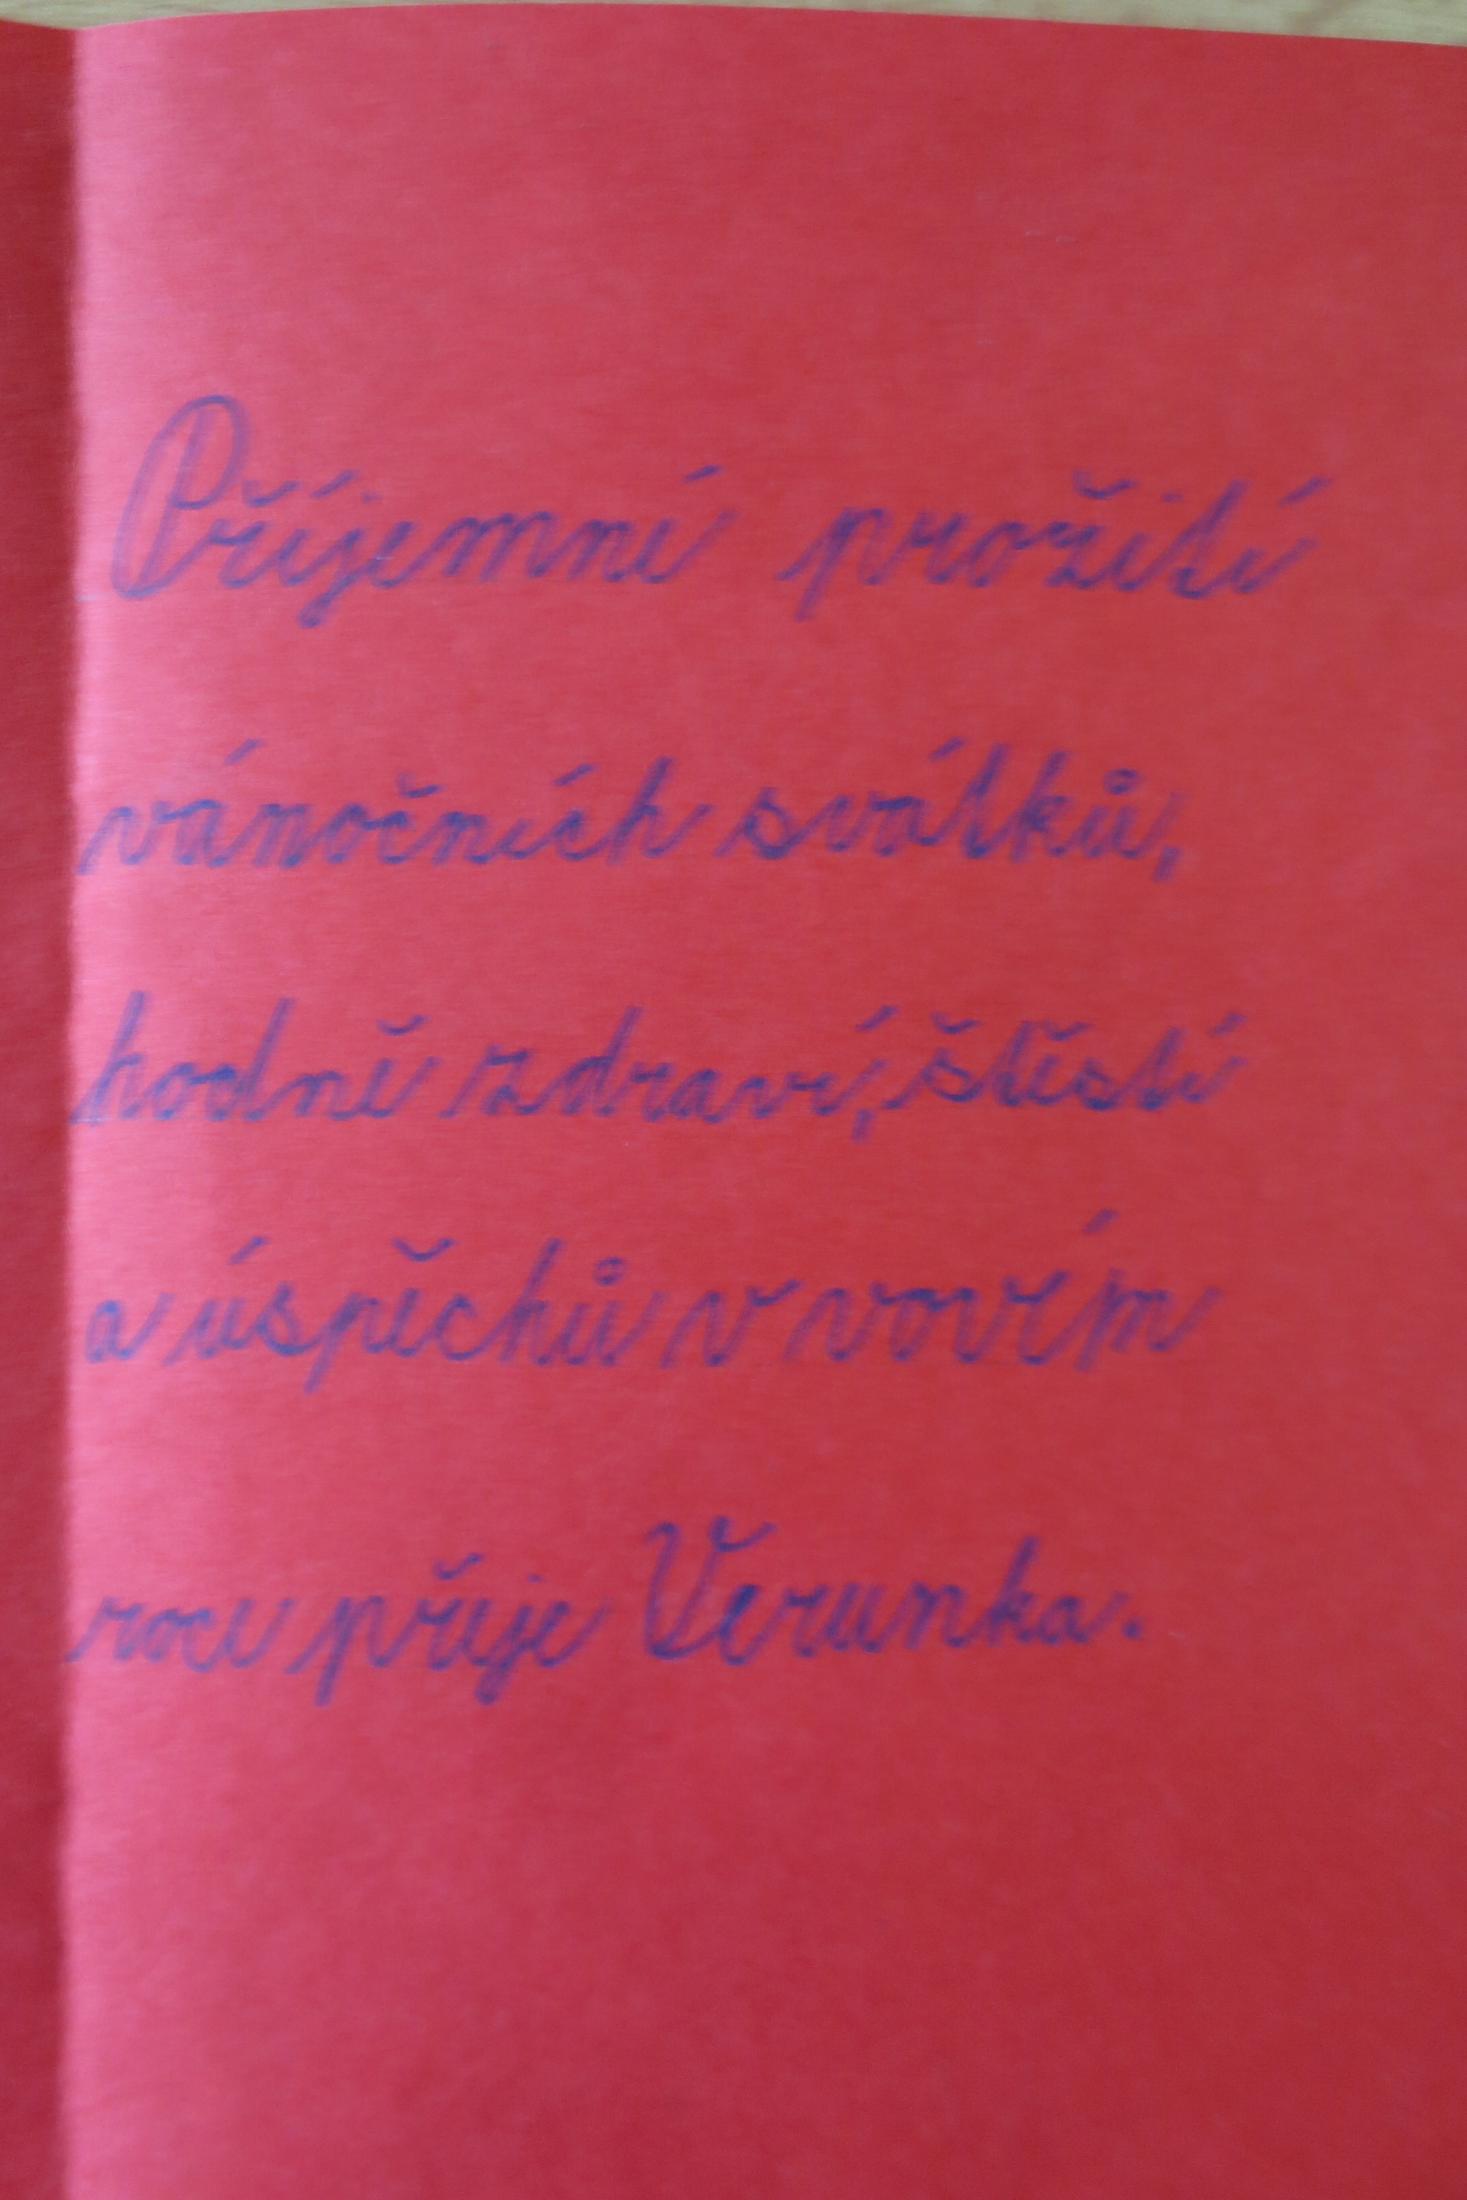 Příjemní prožití
vánočních svátků,
hodně zdraví, štěstí
a úspěchů v novém
roce přeje Verunka.